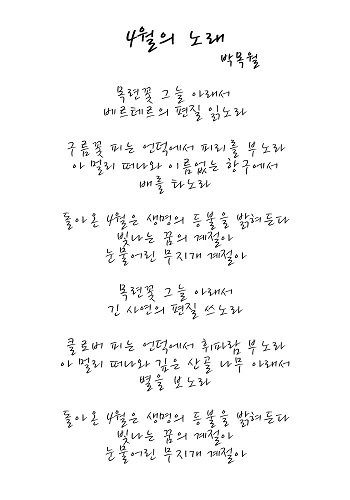 4월의 노래
박목월
목련꽃 그늘 아래서
베르테르의 편질 읽노라
구름꽃 피는 언덕에서 피리를 부노라
아 멀리 떠나와 이름없는 항구에서
배를 타노라
돌아온 4월은 생명의 등불을 밝혀든다
빛나는 꿈의 계절아
눈물어린 무지개 계절아
목련꽃 그늘 아래서
긴 사연의 편질 쓰노라
클로버 피는 언덕에서 휘파람 부노라
아 멀리 떠나와 깊은 산골 나무 아래서
별을 보노라
돌아온 4월은 생명의 등불을 밝혀든다
빛나는 꿈의 계절아
눈물어린 무지개 계절아